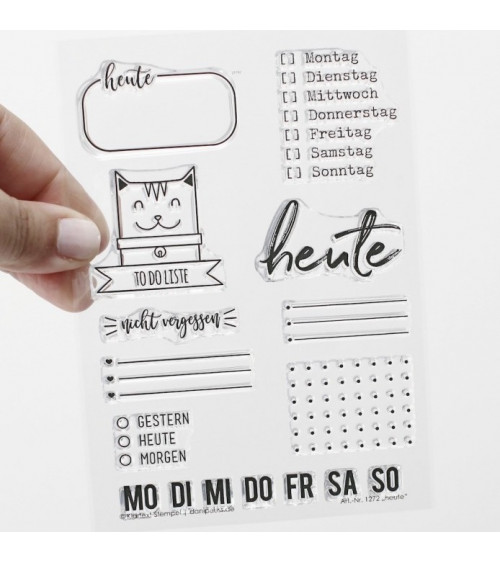 heute
[ ] Montag
[ ] Dienstag
[ ] Mittwoch
[ ] Donnerstag
[ ] Freitag
[ ] Samstag
[ ] Sonntag
TO DO LISTE
heute
nicht vergessen
GESTERN
HEUTE
MORGEN
MO DI MI DO FR SA SO
Stempel
Art.-Nr. 1272 „heute"